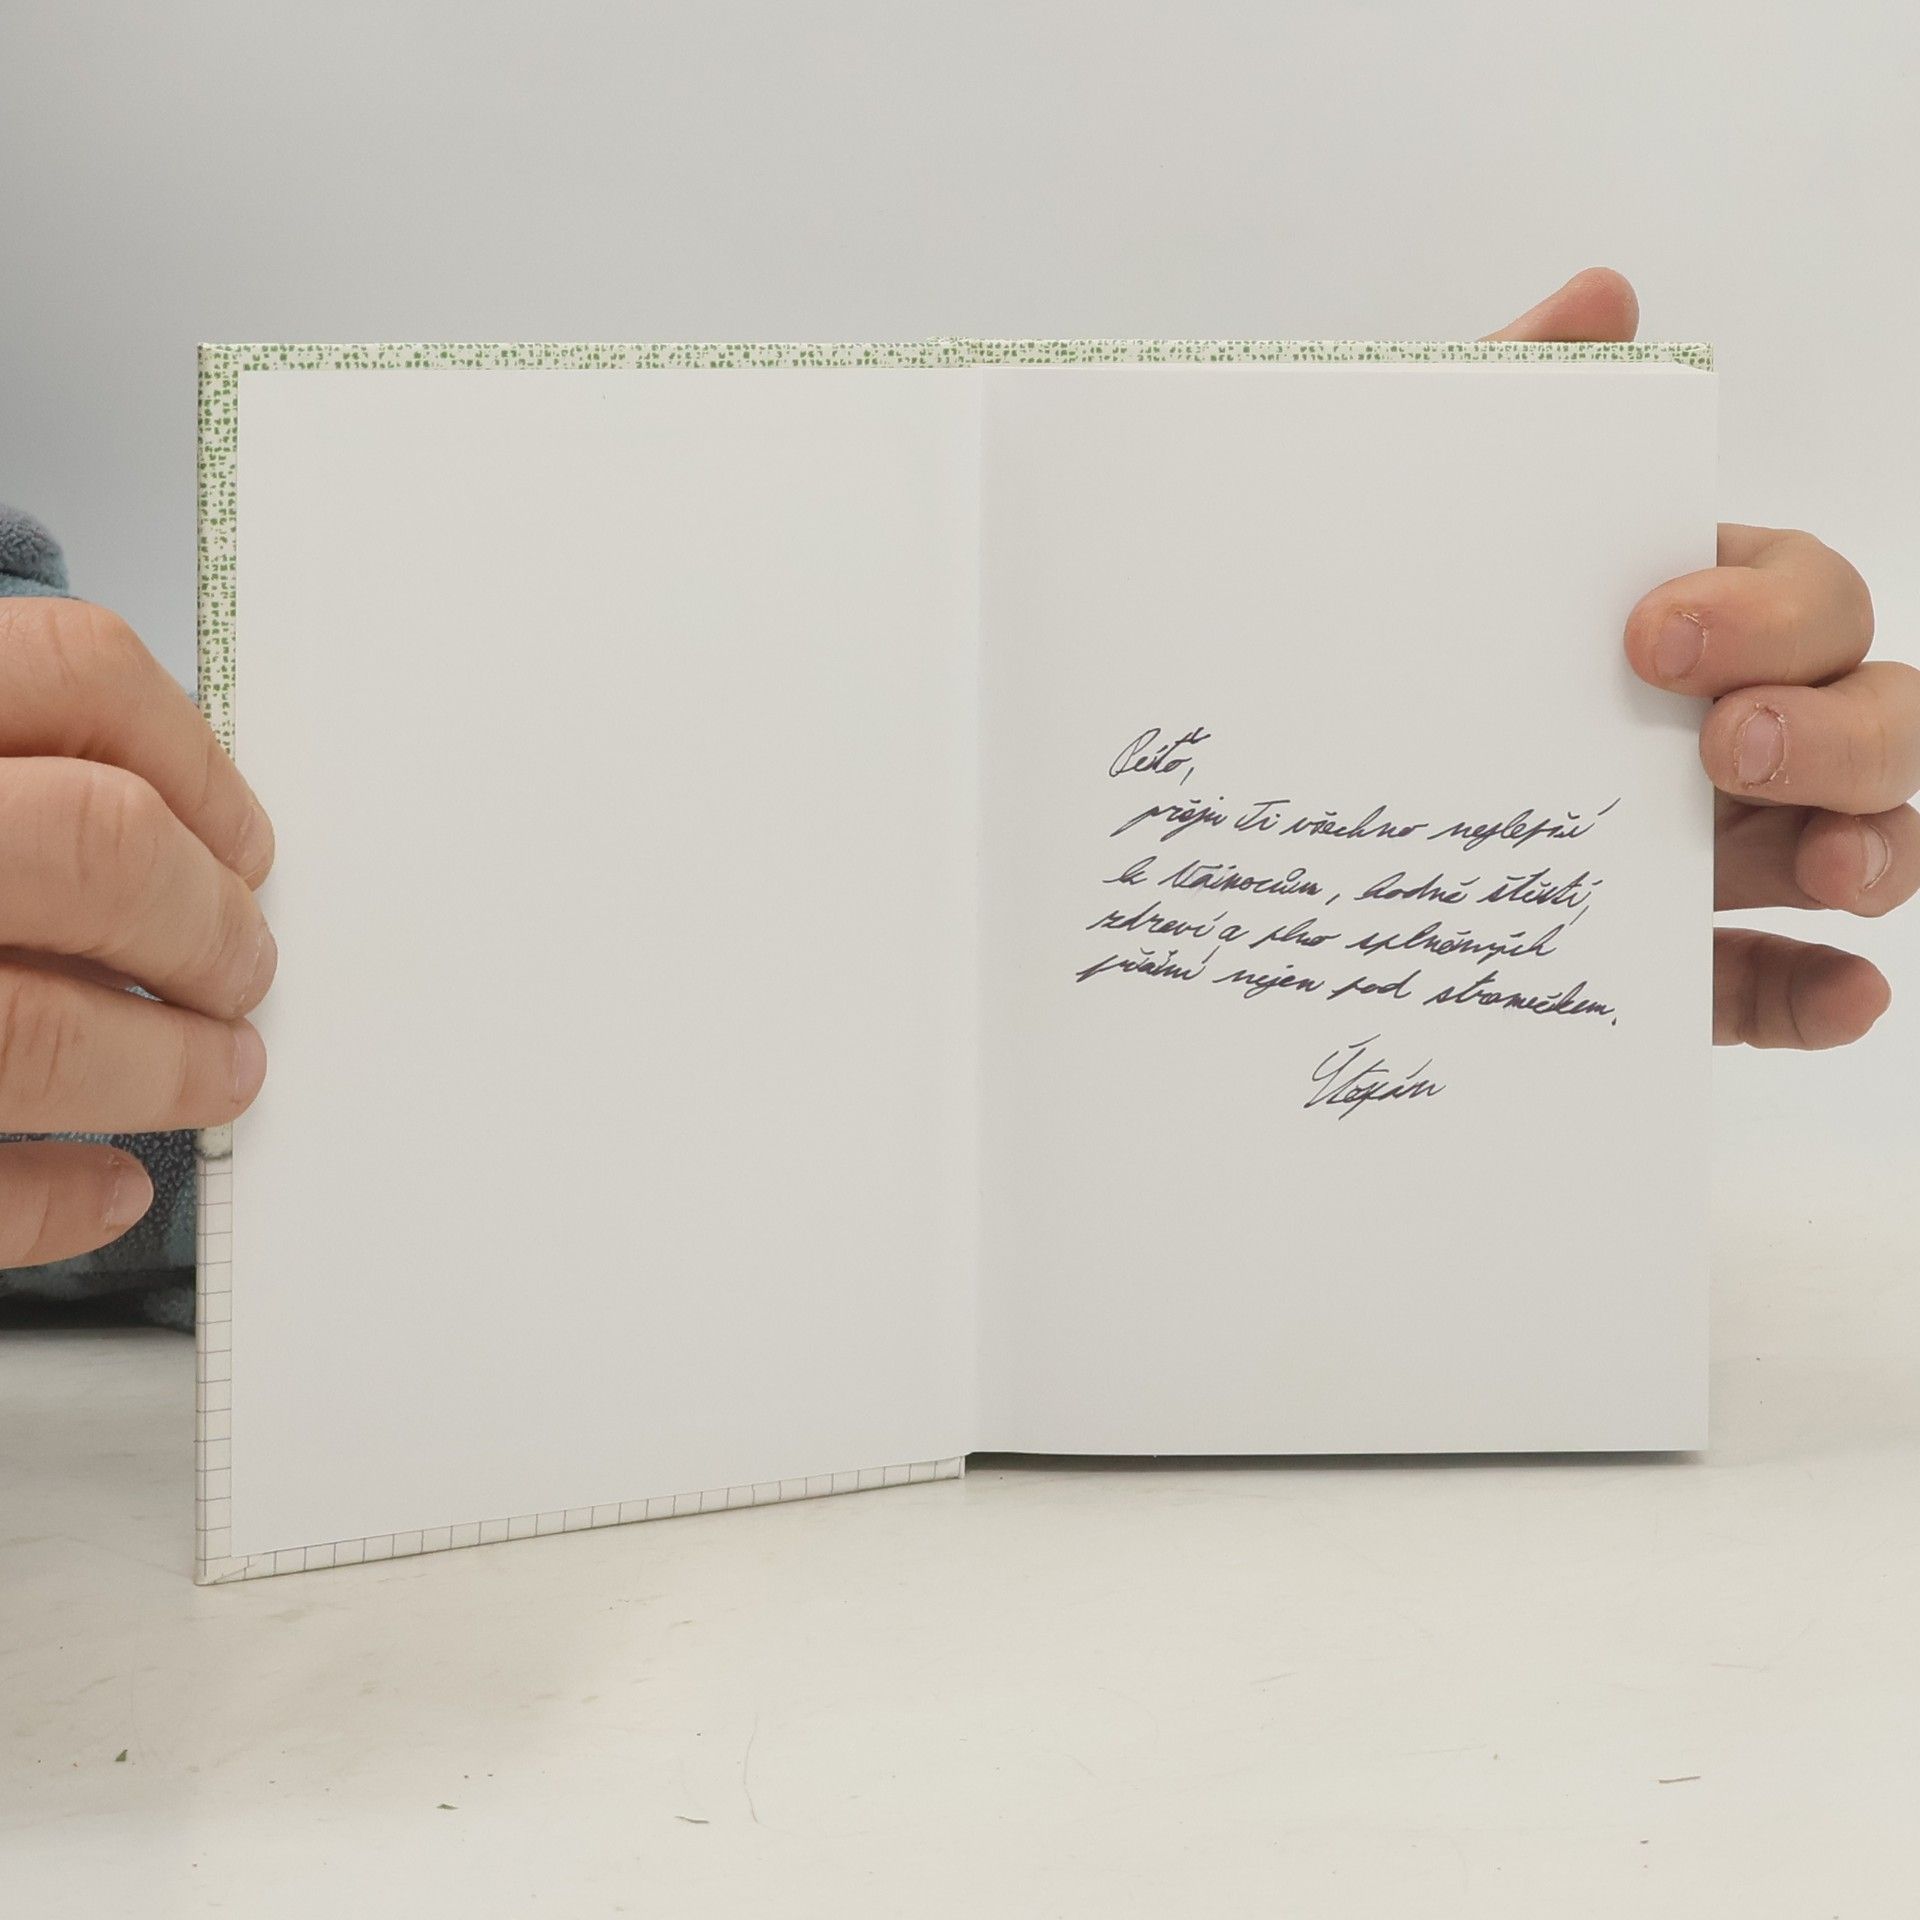 Péťo,
přeju Ti všechno nejlepší
k Vánocům, hodně štěstí,
zdraví a plno splněných
přání nejen pod stromečkem.
Štěpán